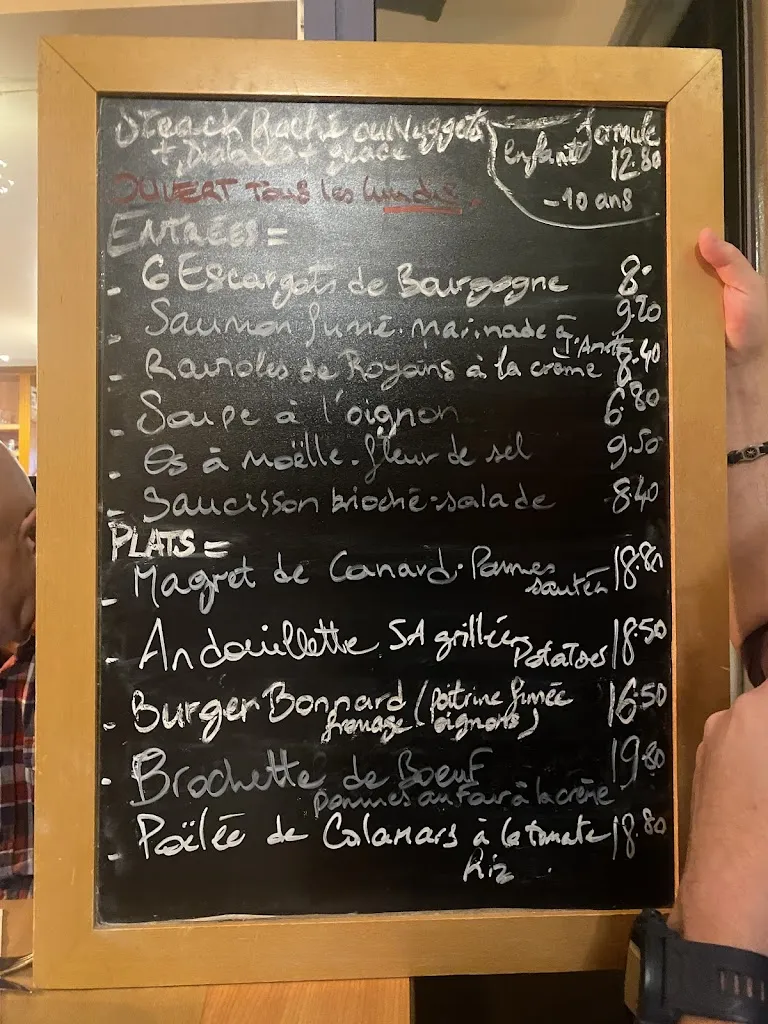 Steack Haché ou Nuggets
+ Diabolo + glace
formule
enfant 12.80
-10 ans
OUVERT Tous les lundis.
ENTRÉES =
- 6 Escargots de Bourgogne 8.
- Saumon fumé. marinade à l'Aneth 9.20
- Ravioles de Royans à la crème 8.40
- Soupe à l'oignon 6.80
- Os à moëlle. fleur de sel 9.50
- Saucisson brioché-salade 8.40
PLATS =
- Magret de Canard. Pommes 18.80
sautées
- Andouillette 5A grillée 18.50
Potatoes
- Burger Bonnard (poitrine fumée 16.50
fromage oignons)
- Brochette de Boeuf 19.80
pommes au four à la crème
- Poëlée de Calamars à la tomate 18.80
Riz